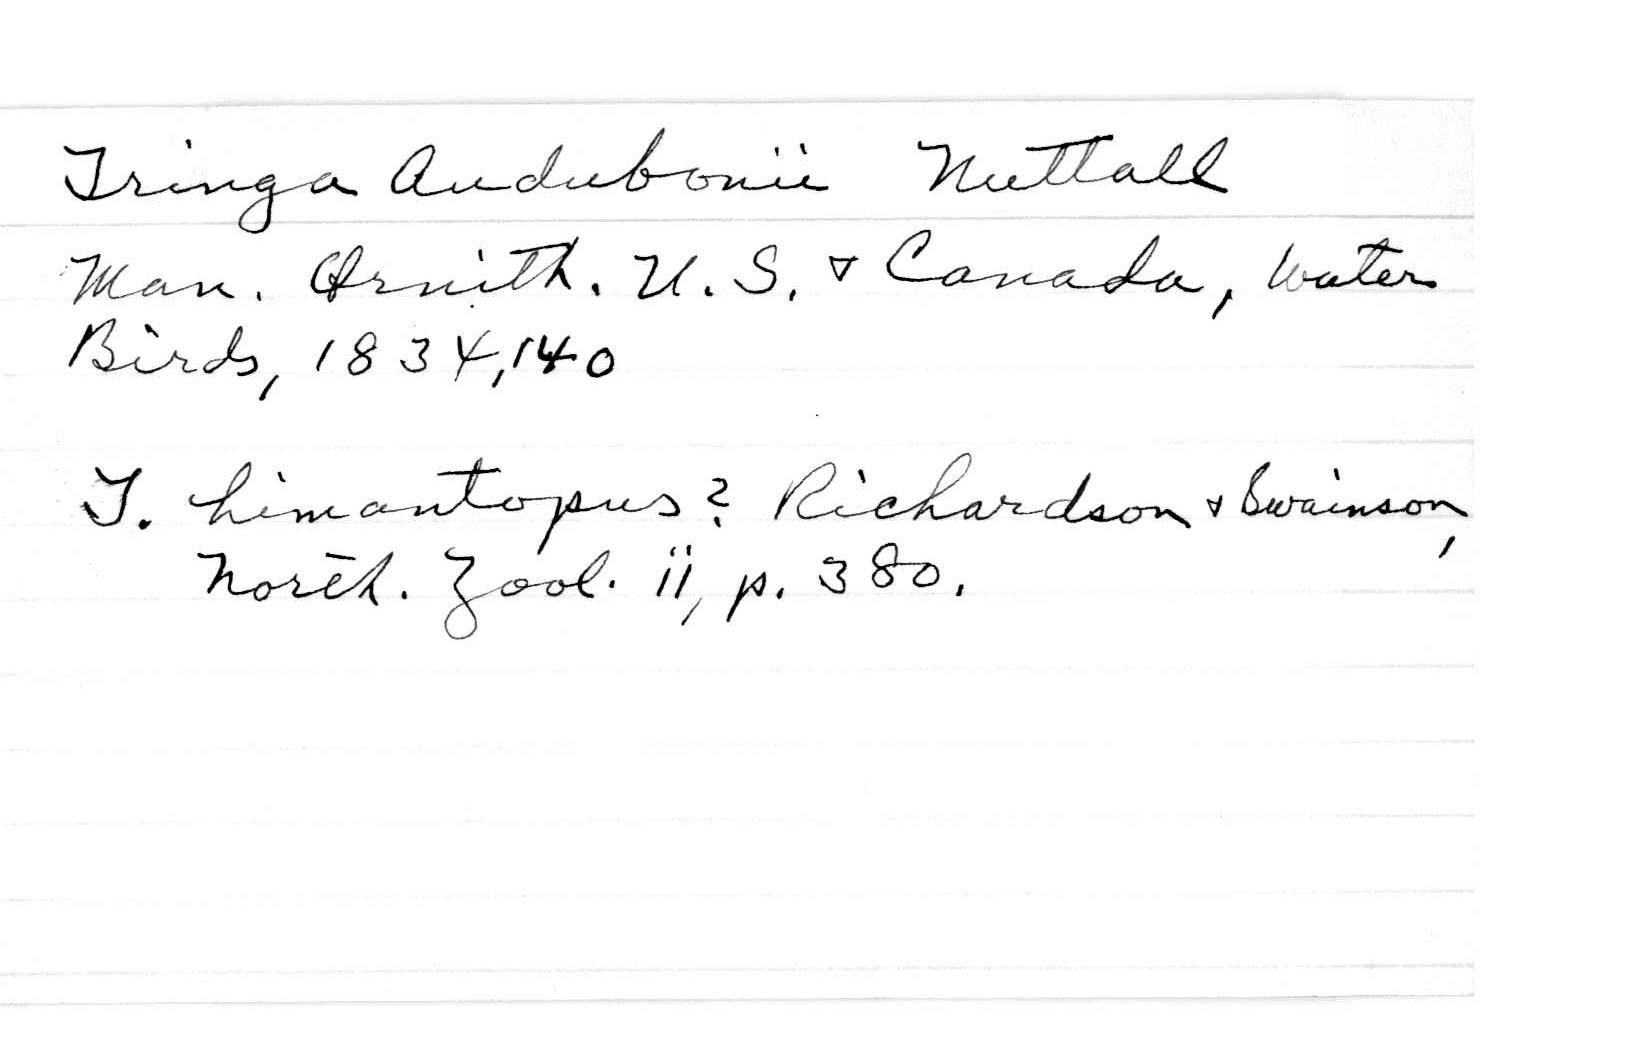 Tringa Audubonii Nuttall
Man. Ornith. U.S. & Canada, Water
Birds, 1834, 140
T. himantopus? Richardson & Swainson,
North. Zool. ii, p. 380.